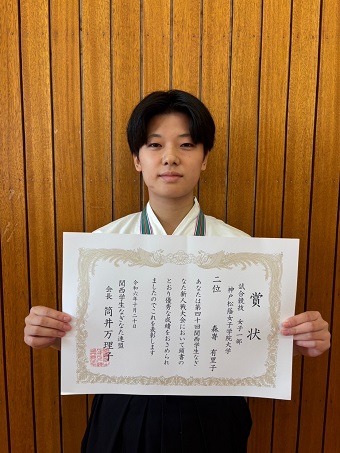 賞状
試合競技 女子一部
神戸松蔭女子学院大学
二位 森專 有里子
あなたは第四十回関西学生なぎ
なた新人戦大会において頭書の
とおり優秀な成績をおさめられ
ましたのでこれを表彰します
令和六年十月二十日
関西学生なぎなた連盟
会長 筒井万理子